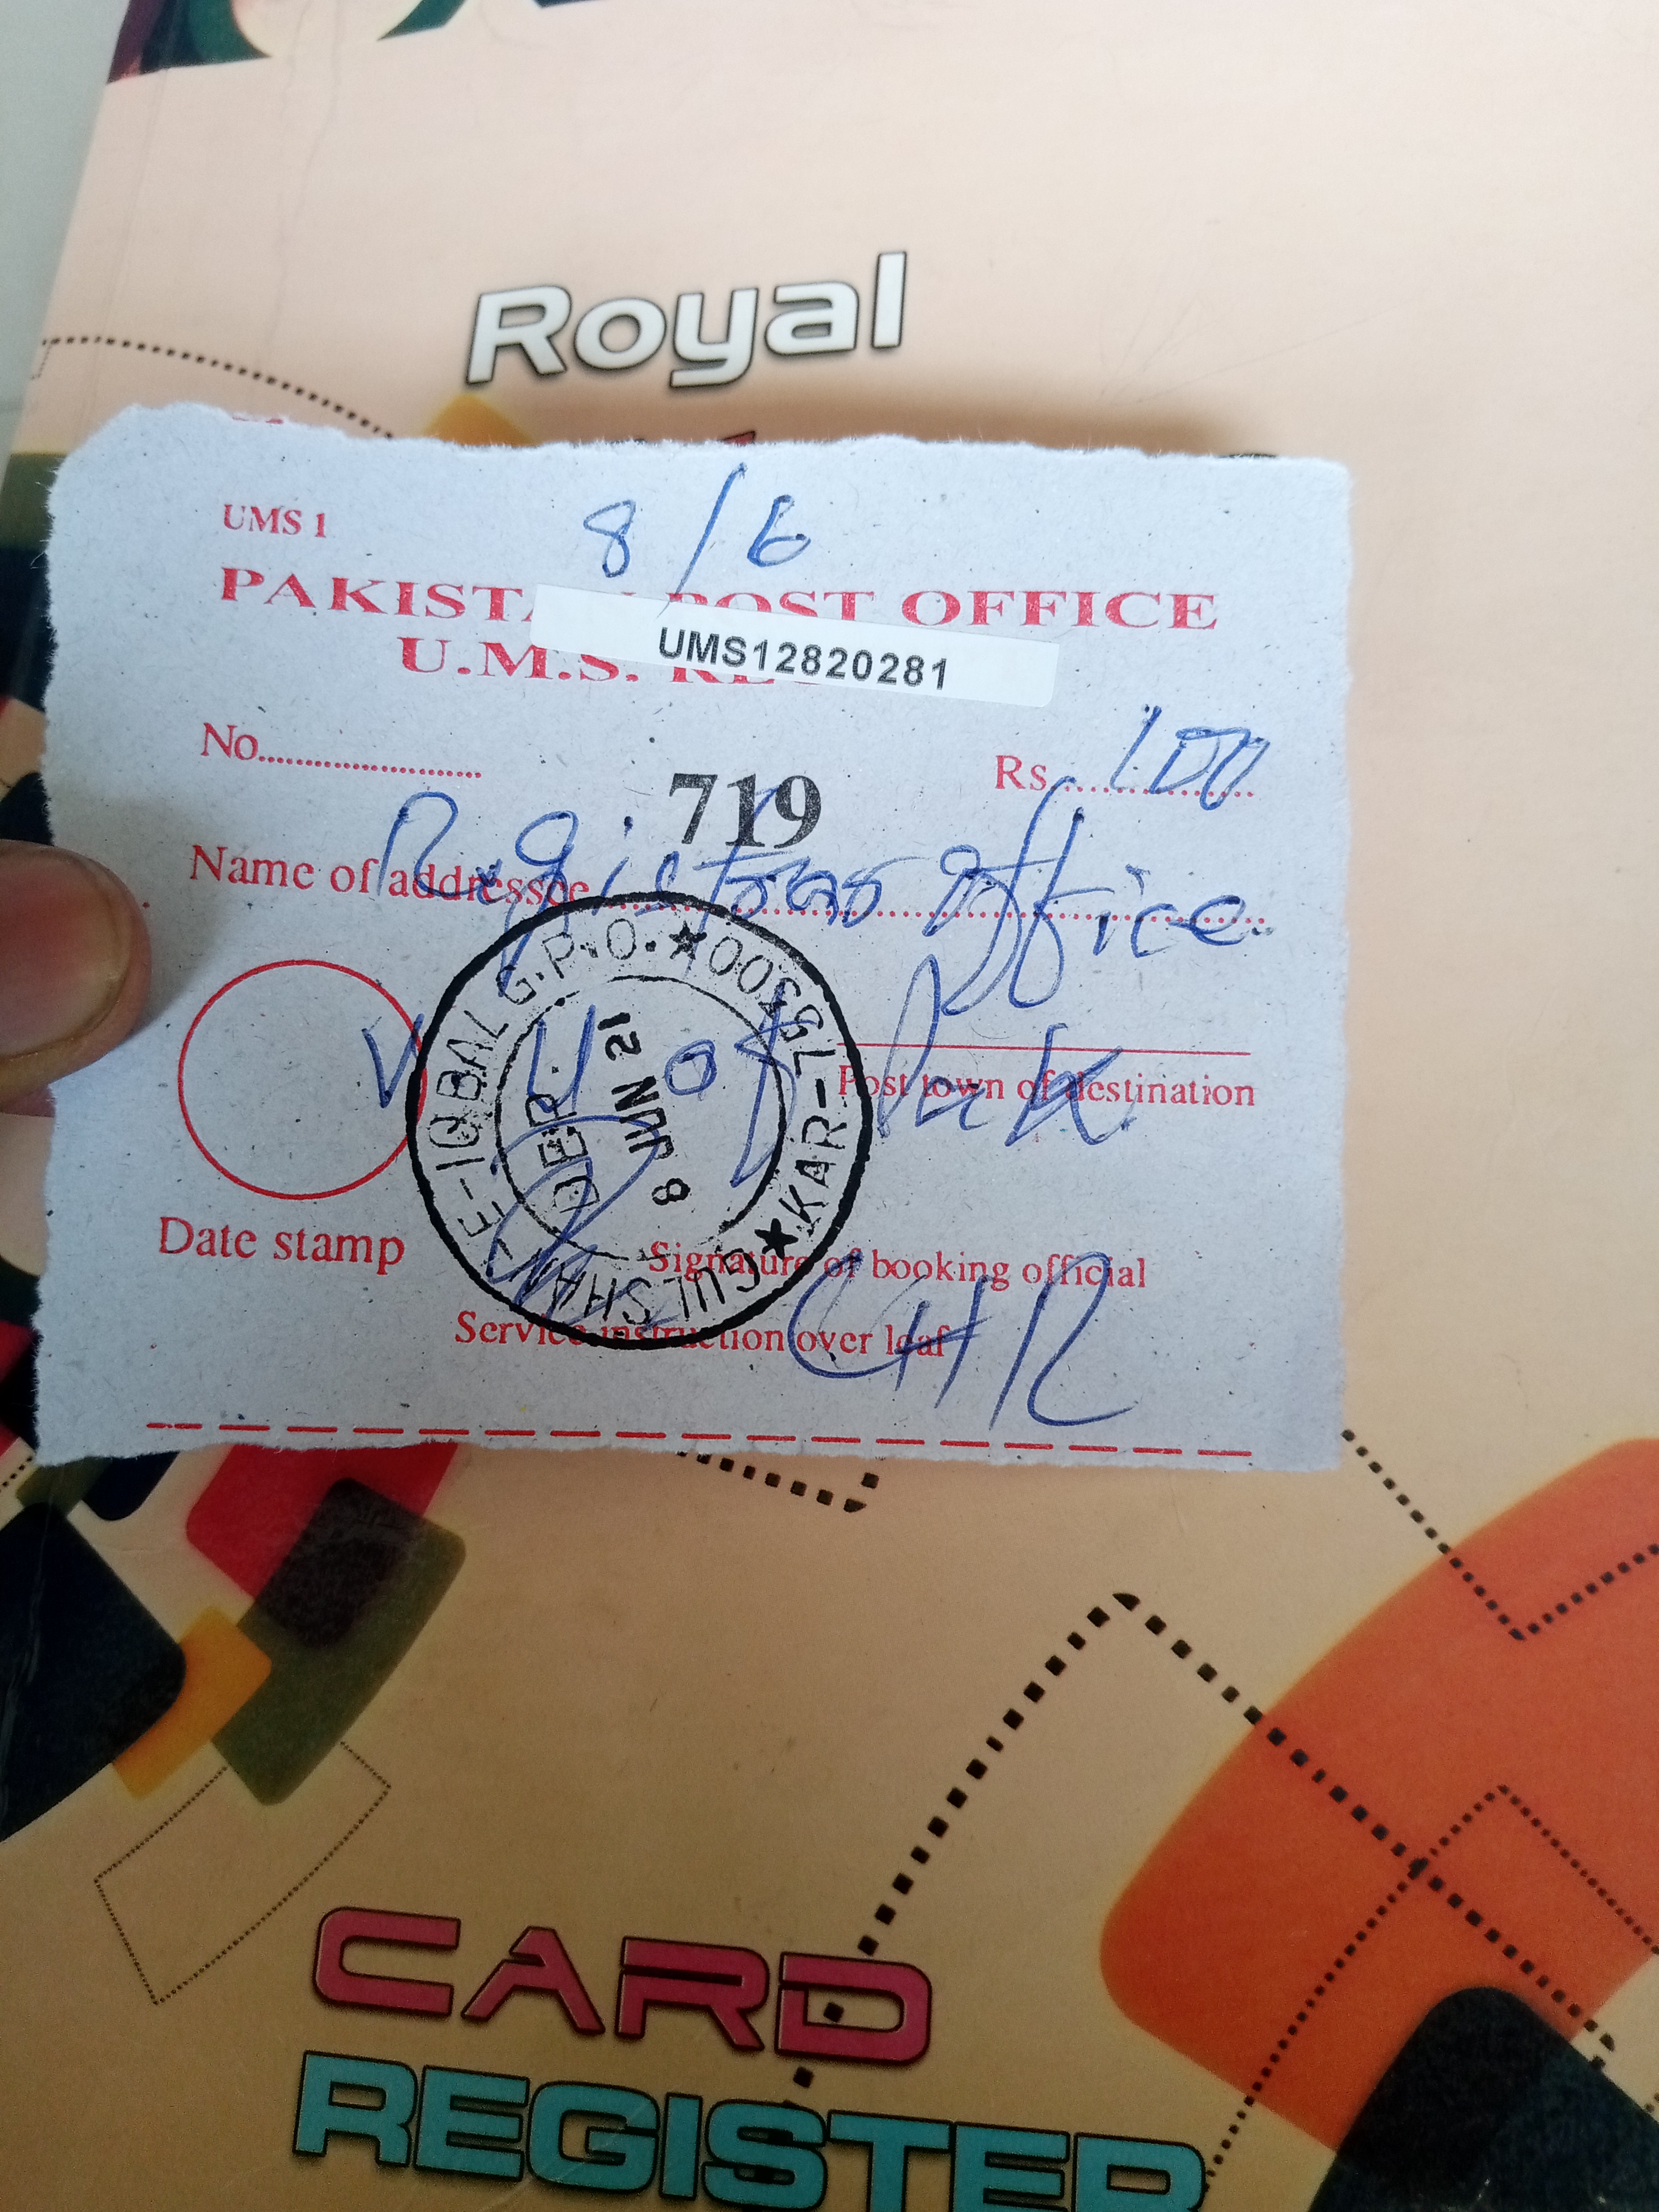 Royal
UMS 1
8/6
PAKISTAN POST OFFICE
UMS12820281
U.M.S.
No........................
719
Rs......100
Name of addressee Registrar office
V U of Pak
Post town of destination
GULSHAN-E-IQBAL G.P.O. ★ 75300 ★ KAR-
8 JUN 21
Date stamp
Signature of booking official
LHR
Service instruction over leaf
CARD
REGISTER